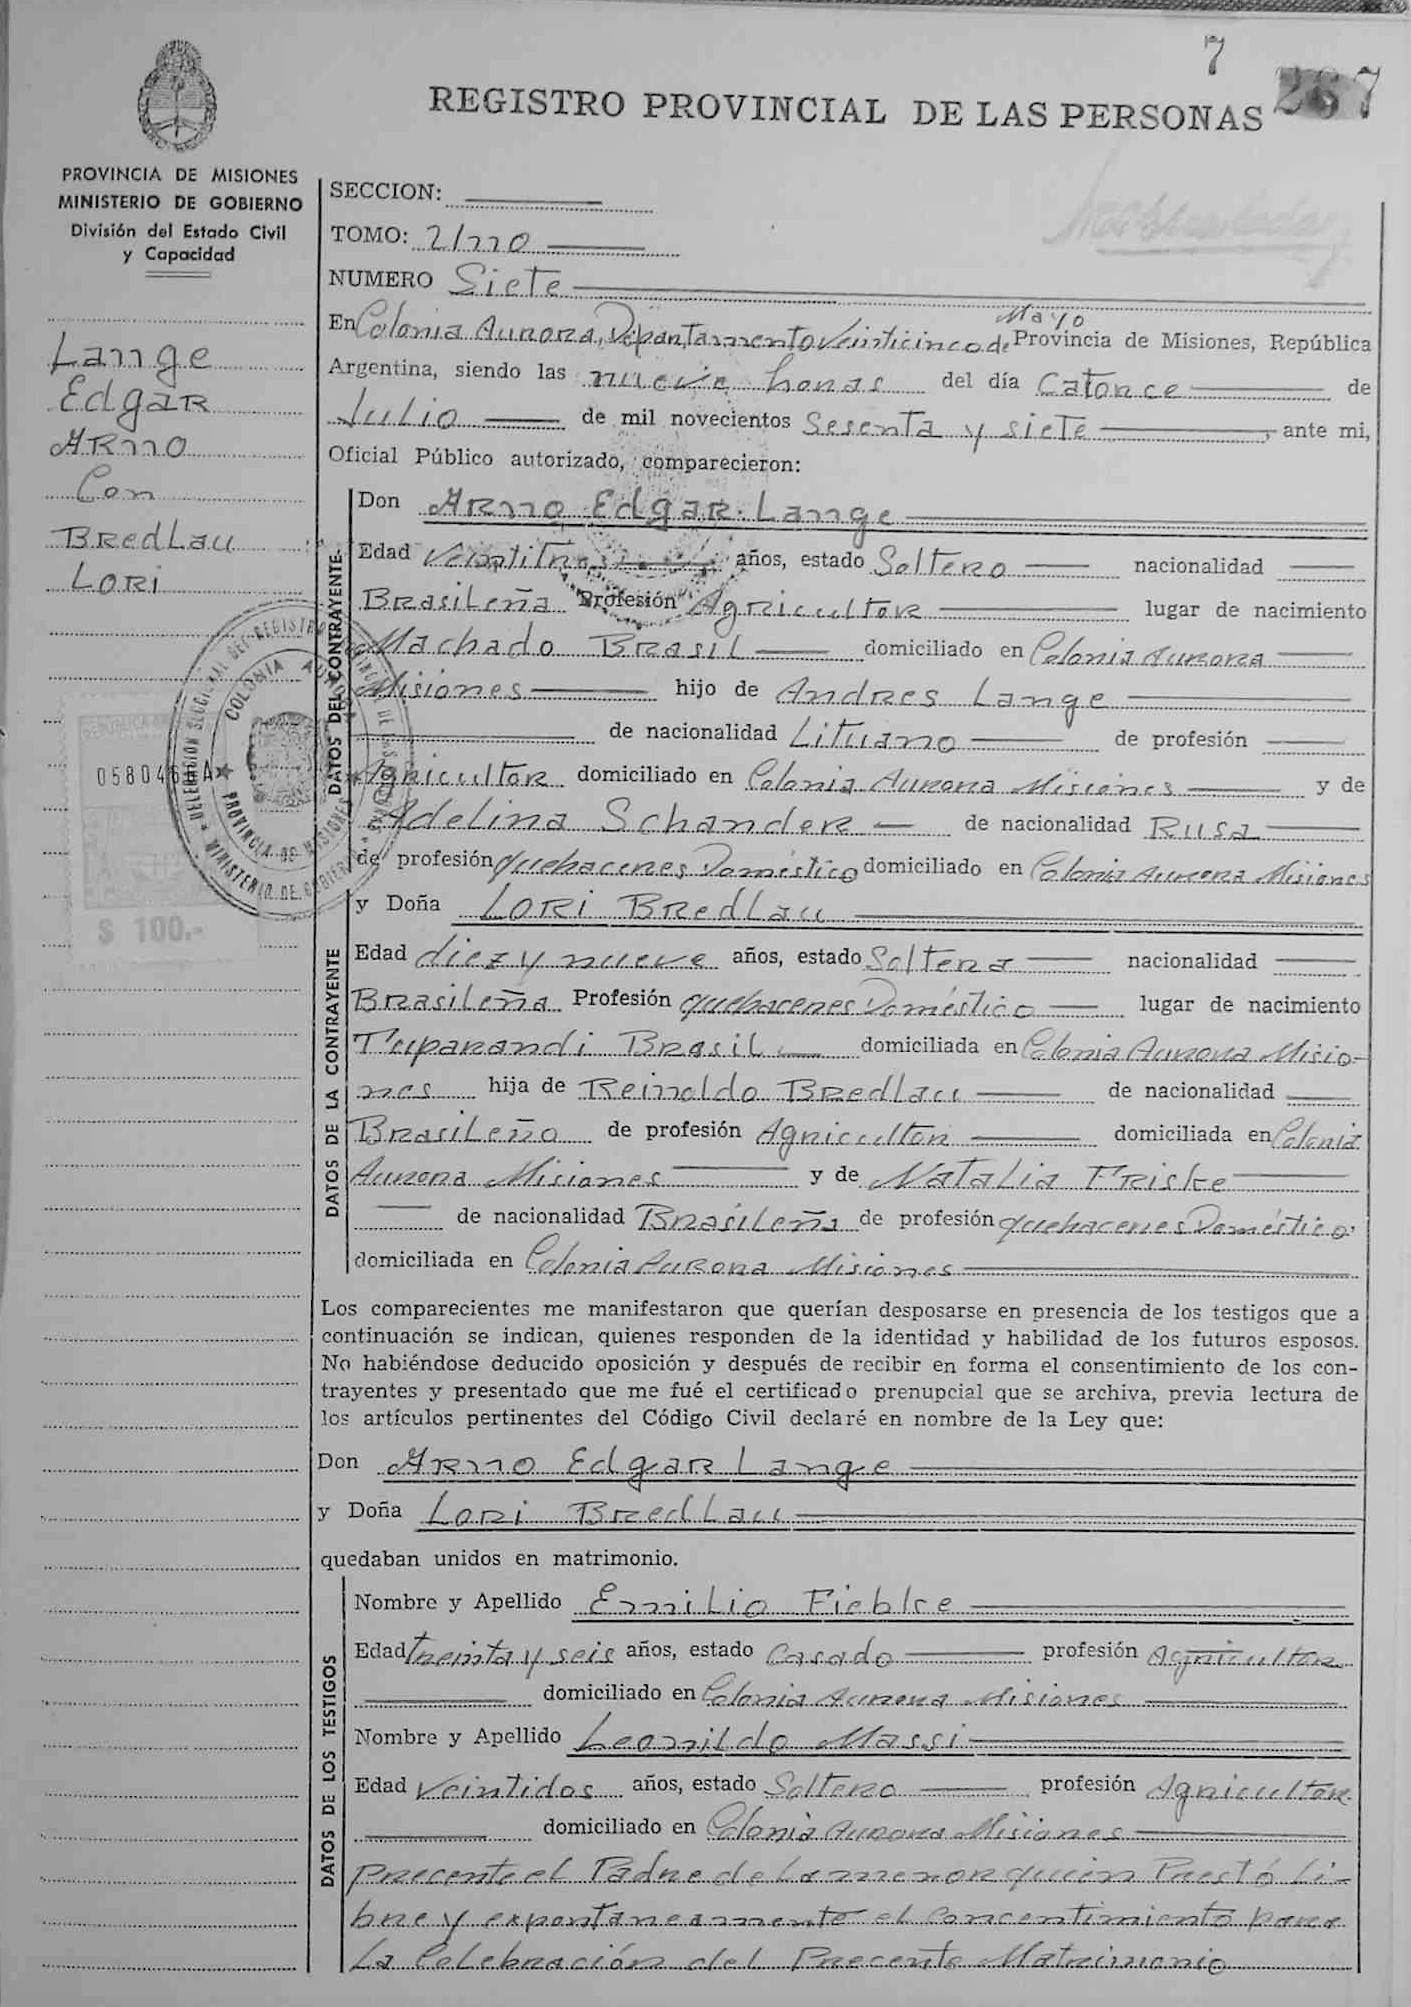 7
267
REGISTRO PROVINCIAL DE LAS PERSONAS
PROVINCIA DE MISIONES
MINISTERIO DE GOBIERNO
División del Estado Civil
y Capacidad
Lange
Edgar
Arno
Con
Bredlau
Lori
SECCION:
TOMO: 2/770
NUMERO Siete
En Colonia Aurora, Departamento Veinticinco de Mayo Provincia de Misiones, República
Argentina, siendo las nueve horas del día Catorce de
Julio de mil novecientos Sesenta y siete, ante mi,
Oficial Público autorizado, comparecieron:
DATOS DEL CONTRAYENTE
Don Arno Edgar Lange
Edad Veintitres años, estado Soltero nacionalidad
Brasileña Profesión Agricultor lugar de nacimiento
Machado Brasil domiciliado en Colonia Aurora
Misiones hijo de Andres Lange
de nacionalidad Lituano de profesión
Agricultor domiciliado en Colonia Aurora Misiones y de
Adelina Schander de nacionalidad Rusa
de profesión quehaceres Doméstico domiciliado en Colonia Aurora Misiones
DELEGACION SECCIONAL DEL REGISTRO
COLONIA AURORA
PROVINCIA DE MISIONES
MINISTERIO DE GOBIERNO
REPUBLICA
$ 100.-
DATOS DE LA CONTRAYENTE
y Doña Lori Bredlau
Edad diez y nueve años, estado Soltera nacionalidad
Brasileña Profesión quehaceres Doméstico lugar de nacimiento
Tuparandi Brasil domiciliada en Colonia Aurora Misio-
nes hija de Reinoldo Bredlau de nacionalidad
Brasileño de profesión Agricultor domiciliada en Colonia
Aurora Misiones y de Natalia Friske
de nacionalidad Brasileña de profesión quehaceres Doméstico
domiciliada en Colonia Aurora Misiones
Los comparecientes me manifestaron que querían desposarse en presencia de los testigos que a
continuación se indican, quienes responden de la identidad y habilidad de los futuros esposos.
No habiéndose deducido oposición y después de recibir en forma el consentimiento de los con-
trayentes y presentado que me fué el certificado prenupcial que se archiva, previa lectura de
los artículos pertinentes del Código Civil declaré en nombre de la Ley que:
Don Arno Edgar Lange
y Doña Lori Bredlau
quedaban unidos en matrimonio.
DATOS DE LOS TESTIGOS
Nombre y Apellido Emilio Fieblke
Edad treinta y seis años, estado Casado profesión Agricultor
domiciliado en Colonia Aurora Misiones
Nombre y Apellido Leonildo Massi
Edad Veintidos años, estado Soltero profesión Agricultor
domiciliado en Colonia Aurora Misiones
Precente el Padre de La menor quien Prestó Li-
bre y expontaneamente el Concentimiento para
La Celebración del Precente Matrimonio